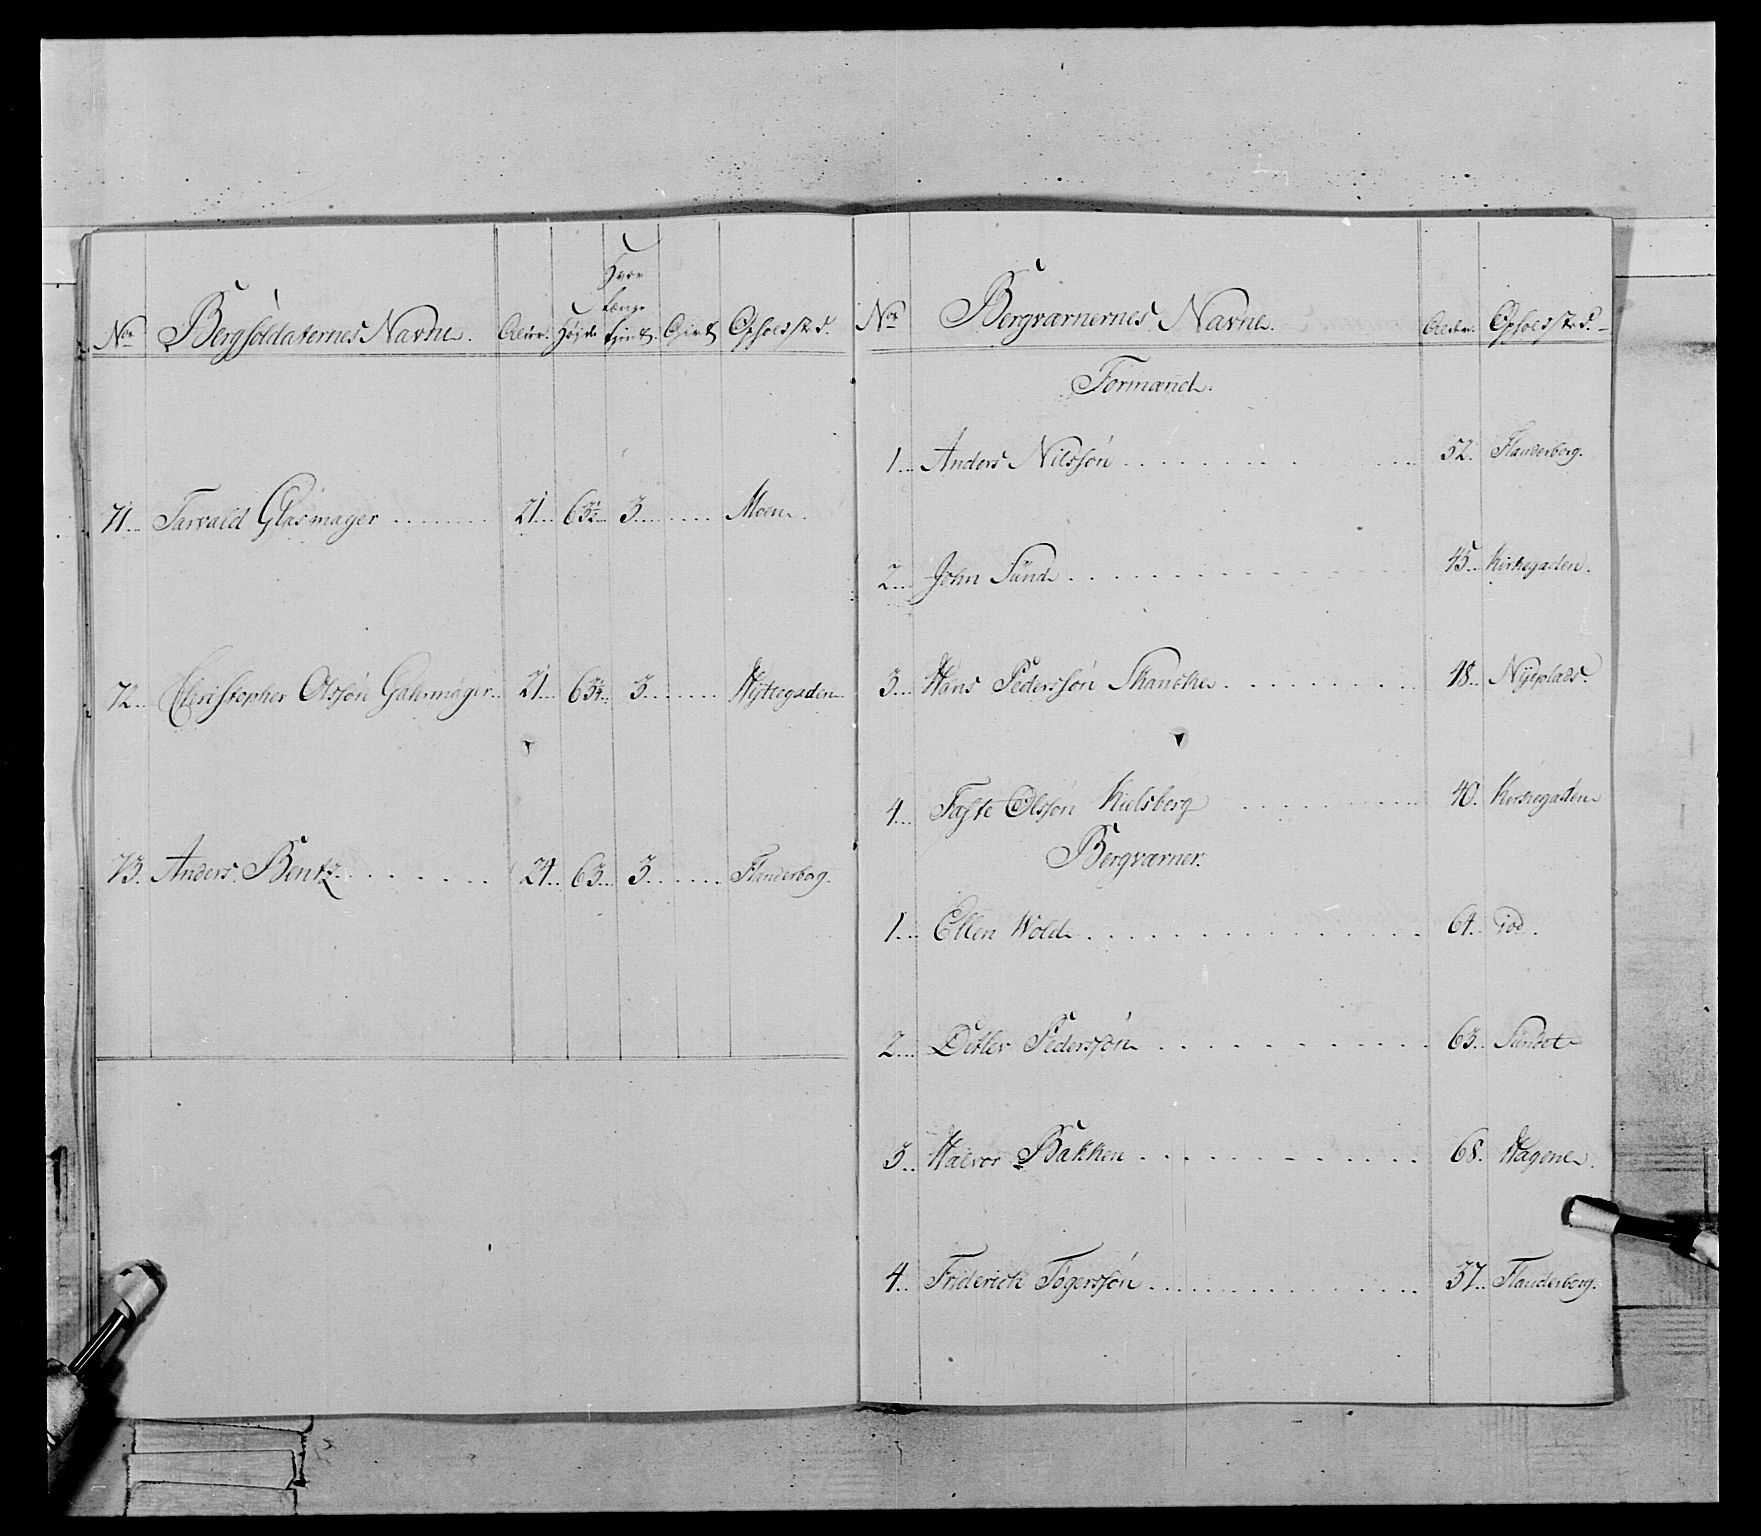 Nor Bergsoldaternes Navne. Alder. Højde Tjent. Opholdsted.
71... Tarvald Glasmager ....... 21... 63½... 3....... Moen.
72.. Christopher Olssøn Galermager.. 21... 63¼... 3....... Hyttegaden
73. Anders Bentz ....... 24... 63... 3....... Flanderborg.
Nor Bergværnernes Navne. Alder. Opholdsted.
Formænd.
1... Anders Nilssøn ....... 52. Flanderborg.
2... John Sund ....... 45.. Kirkegaden.
3... Hans Pederssøn Skancke ....... 48.. Nyeplads.
4... Tafte Olssøn Kielsberg ....... 40. Kirkegaden
Bergværner.
1... Ellen Wold ....... 64..
2... Detlev Pederssøn ....... 63.. Sundet
3.. Halvor Bakken ....... 68. Hagene.
4.. Friderich Tøgerssøn ....... 37.. Flanderborg.